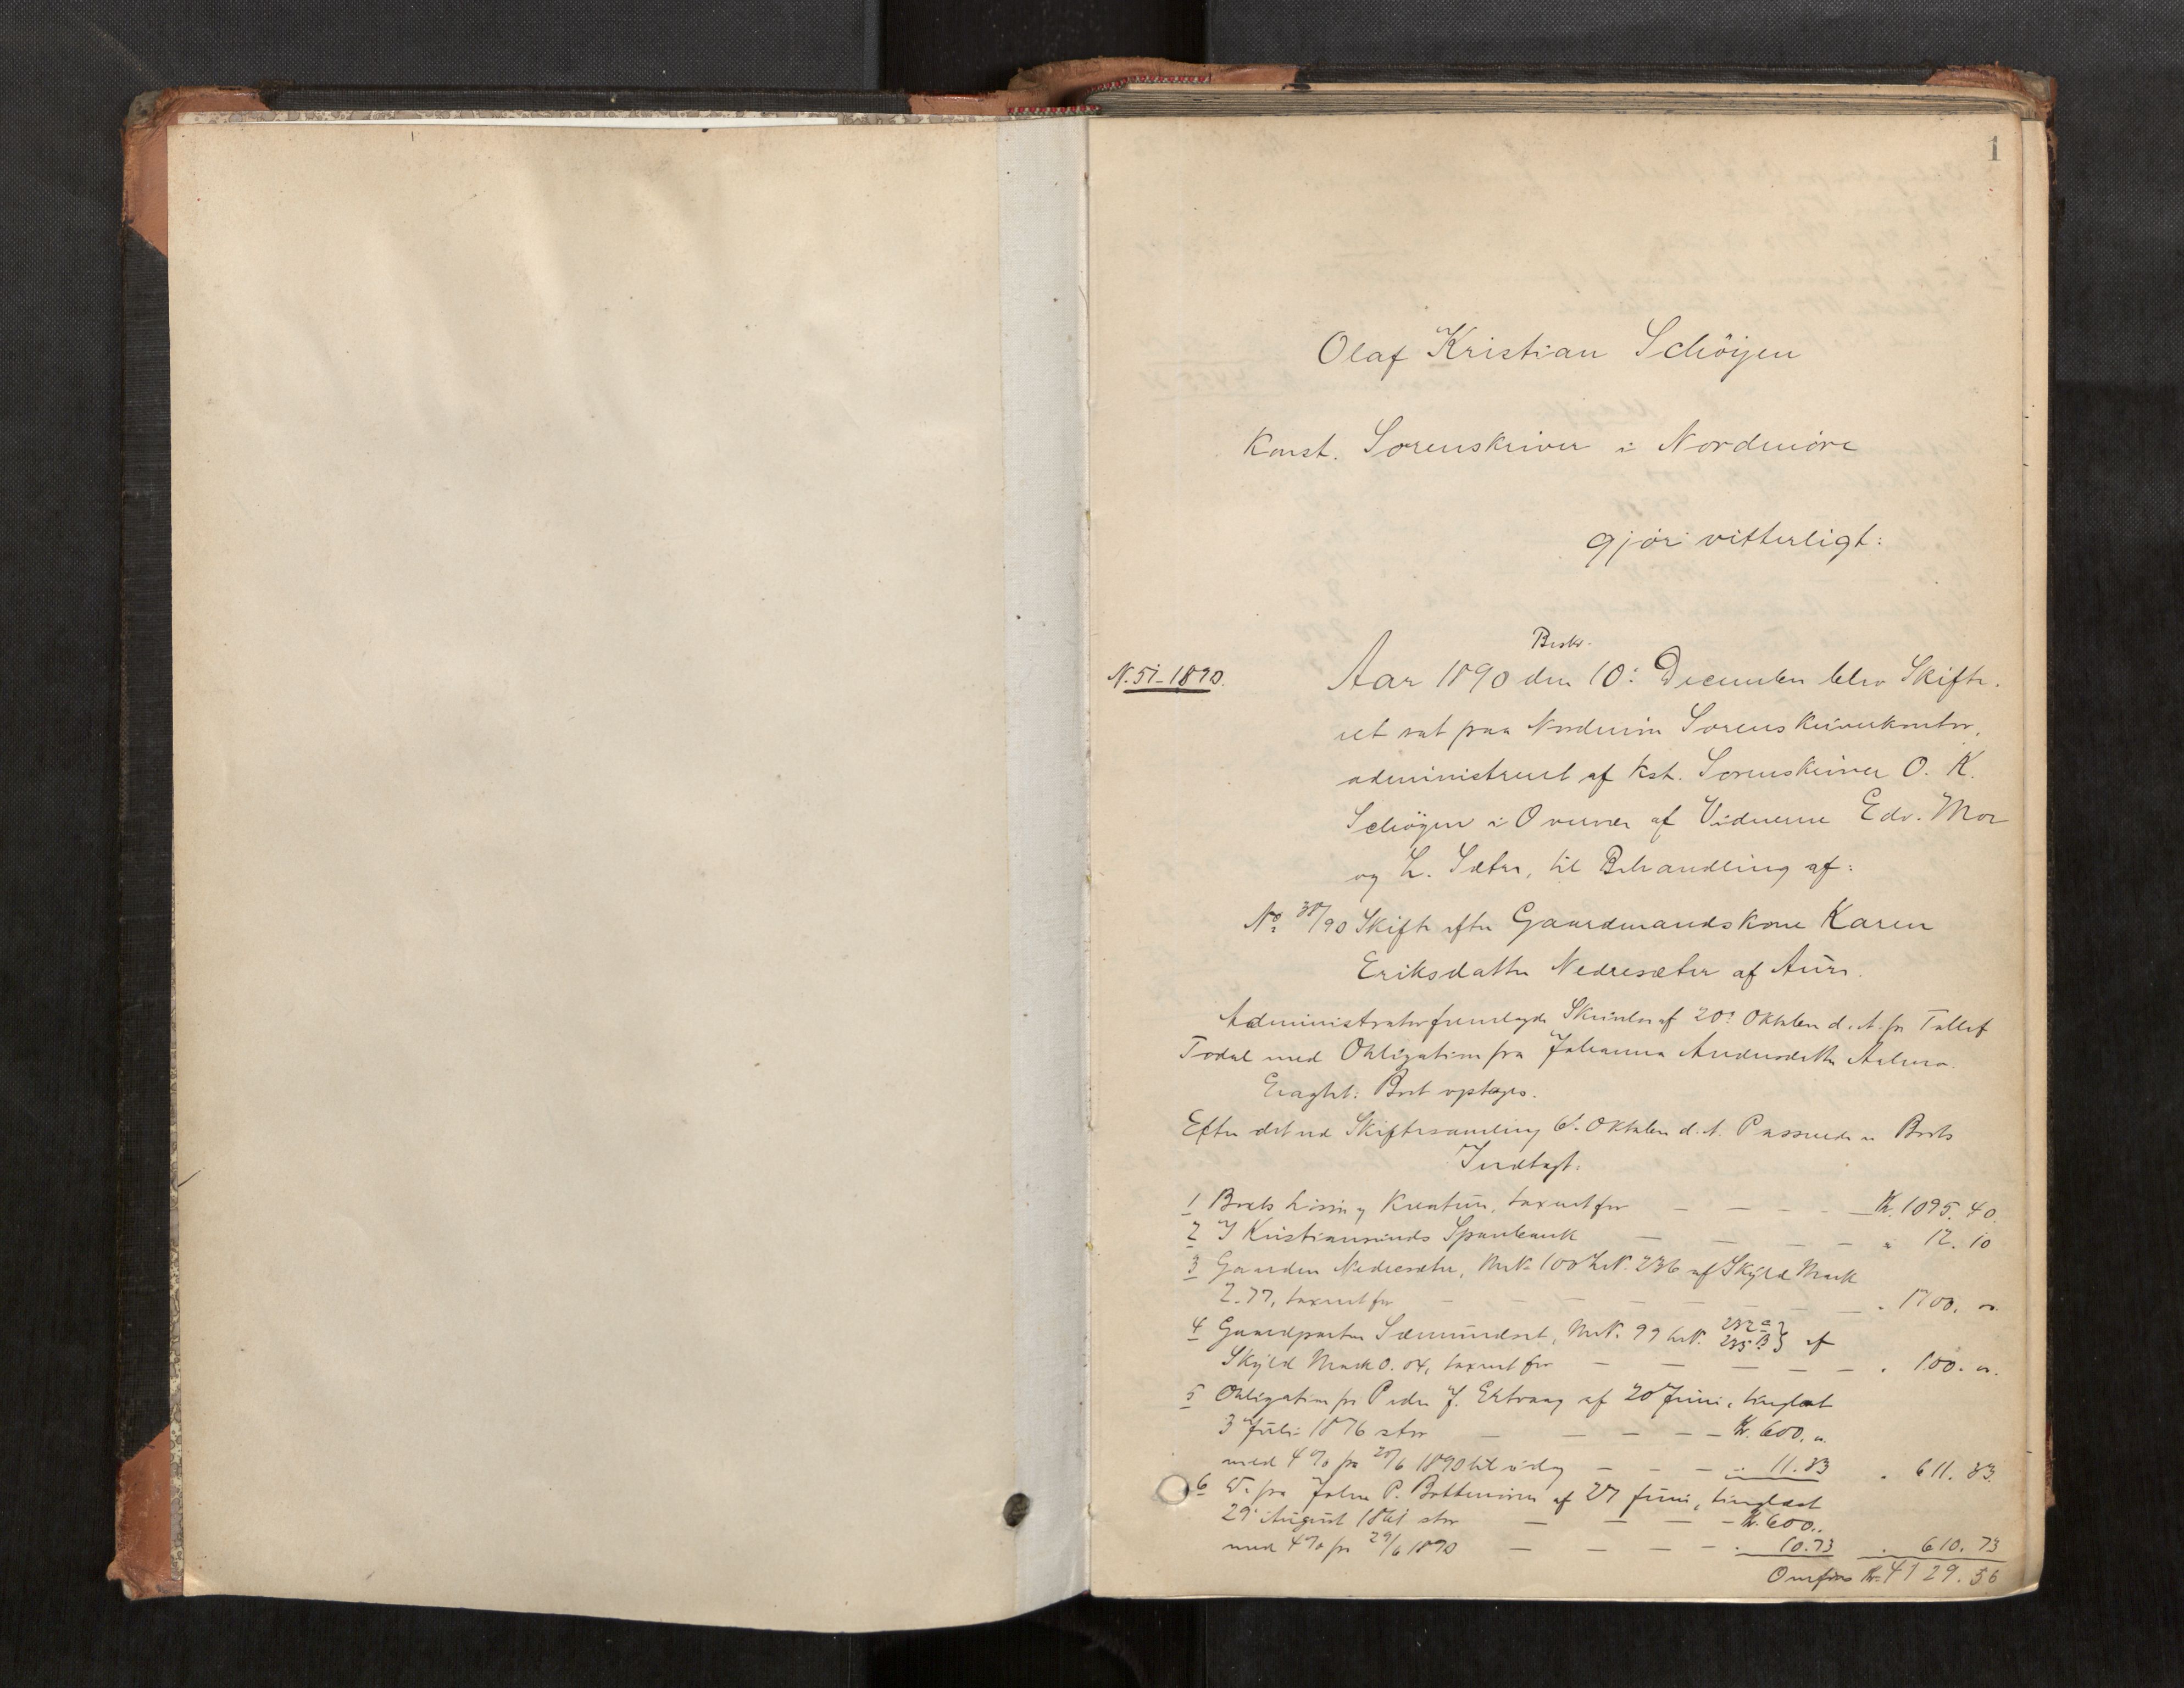 1
Olaf Kristian Schöyen
Konst. Sorenskriver i Nordmöre
gjör vitterligt:
Beskr.
N. 51-1890.
Aar 1890 den 10: December blev Skifte-
ret sat paa Nordmöre Sorenskriverkontor,
administreret af Kst. Sorenskriver O. K.
Schöyen i Overvær af Vidnerne Edv. Moe
og L. Sæter, til Behandling af:
No. 38/90 Skifte efter Gaardmandskone Karen
Eriksdatter Nedresæter af Aure.
Administrator fremlagde Skrivelse af 20: Oktober d. A. fra Tollef
Todal med Obligation fra Johanna Andersdatter
Eragtet: Boet optages.
Efter det ved Skiftesamling 6. Oktober d. A. Passerede er Boets
Indtægt:
1 Boets Lösöre og Kreature, taxeret for — — — — Kr. 1095. 40.
2 I Kristianssunds Sparebank — — — — " 12. 10
3 Gaarden Nedresæter, MrN. 100 LN. 236 af Skyld Mark
2.77, taxeret for — — — — — — " 1700. "
4 Gaardparten Sæmundset, MrN. 99 LN. 232 a 235 B } af
Skyld Mark 0.04, taxeret for — — — — — " 100. "
5 Obligation fra Peder J. Ertvaag af 20 Juni, tinglæst
3 Juli 1876 stor — — — — — Kr. 600. "
med 4 % fra 20/6 1890 til idag — — — " 11.33 " 611. 33.
6 Do. fra John P. af 27 Juni, tinglæst
29 August 1881 stor — — — — Kr. 600. "
med 4 % fra 29/6 1890 — — — — " 10.73 " 610. 73
Overföres Kr. 4129. 56